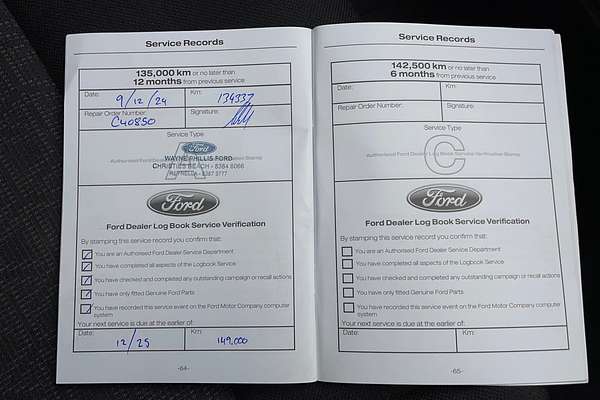 Service Records
135,000 km or no later than
12 months from previous service
Date: Km:
9/12/24 134337
Repair Order Number: Signature:
C40850
Service Type
A
Ford
WAYNE PHILLIS FORD
CHRISTIES BEACH - 8384 8066
REYNELLA - 8387 3777
Ford
Ford Dealer Log Book Service Verification
By stamping this service record you confirm that:
You are an Authorised Ford Dealer Service Department
You have completed all aspects of the Logbook Service
You have checked and completed any outstanding campaign or recall actions
You have only fitted Genuine Ford Parts
You have recorded this service event on the Ford Motor Company computer
system
Your next service is due at the earlier of:
Date: Km:
12/25 149,000
-64-
Service Records
142,500 km or no later than
6 months from previous service
Date: Km:
Repair Order Number: Signature:
Service Type
Authorised Ford Dealer Log Book Service Verification Stamp
C
Ford
Ford Dealer Log Book Service Verification
By stamping this service record you confirm that:
You are an Authorised Ford Dealer Service Department
You have completed all aspects of the Logbook Service
You have checked and completed any outstanding campaign or recall actions
You have only fitted Genuine Ford Parts
You have recorded this service event on the Ford Motor Company computer
system
Your next service is due at the earlier of:
Date: Km:
-65-